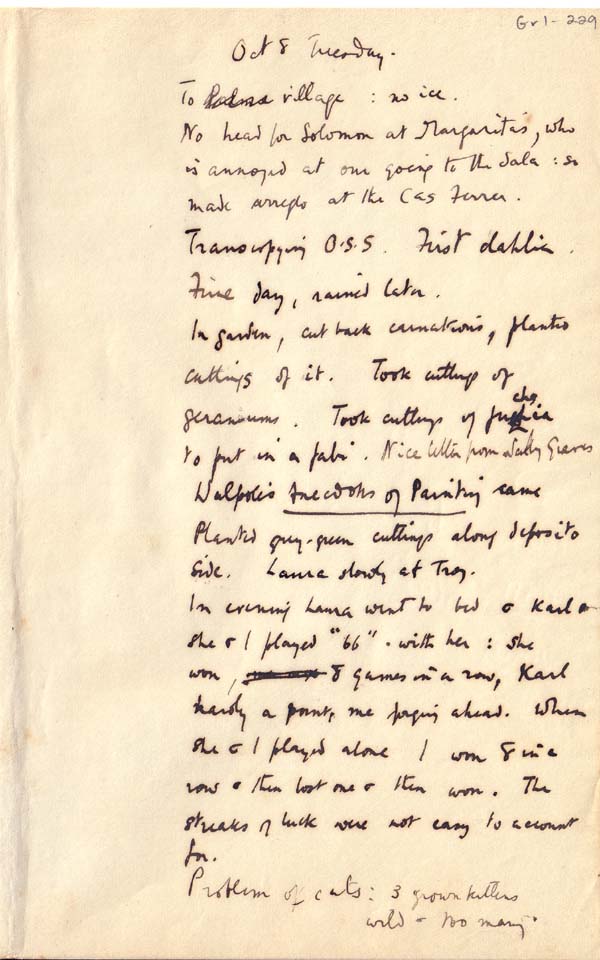 Gr1-229
Oct 8 Tuesday.
To Palma village : no ice.
No head for Solomon at Margarita's, who
is annoyed at our going to the Sala : so
made arreglo at the Cas Ferrer.
Transcopying O.S.S. First dahlia.
Fine day, rained later.
In garden, cut back carnations, planted
cuttings of it. Took cuttings of
geraniums. Took cuttings of fuchsia
to put in a . Nice letter from Sally Graves
Walpole's Anecdotes of Painting came
Planted grey-green cuttings along deposito
side. Laura slowly at Troy.
In evening Laura went to bed & Karl &
she & I played "66" - with her : she
won, 8 games in a row, Karl
hardly a point, me forging ahead. When
she & I played alone I won 8 in a
row & then lost one & then won. The
streaks of luck were not easy to account
for.
Problem of cats: 3 grown kittens
wild - too many.